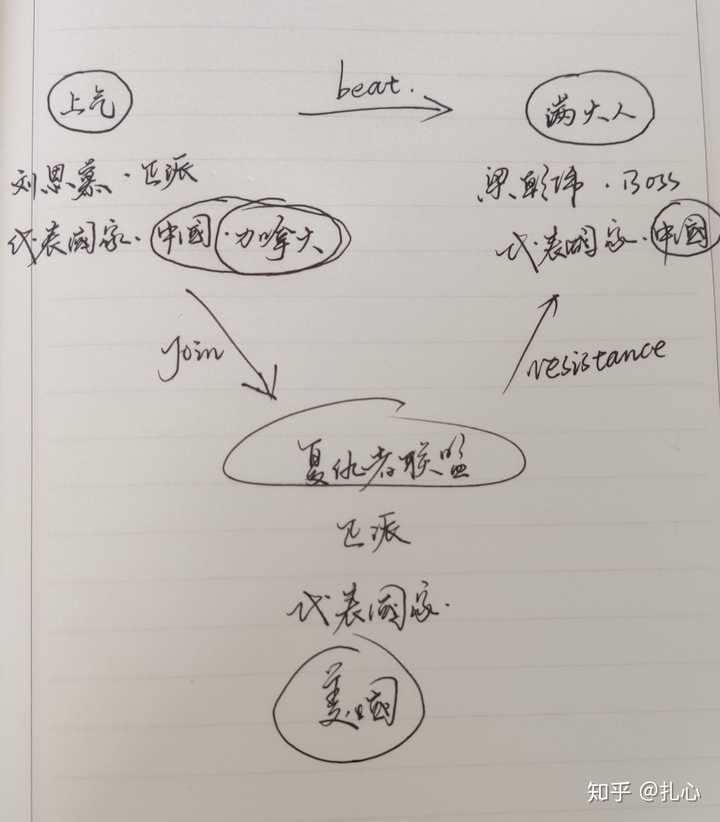 上气
beat.
满大人
刘思慕·正派
梁朝伟·Boss
代表國家·中國·加拿大
代表國家·中國
Join
resistance
复仇者联盟
正派
代表國家·
美國
知乎 @扎心